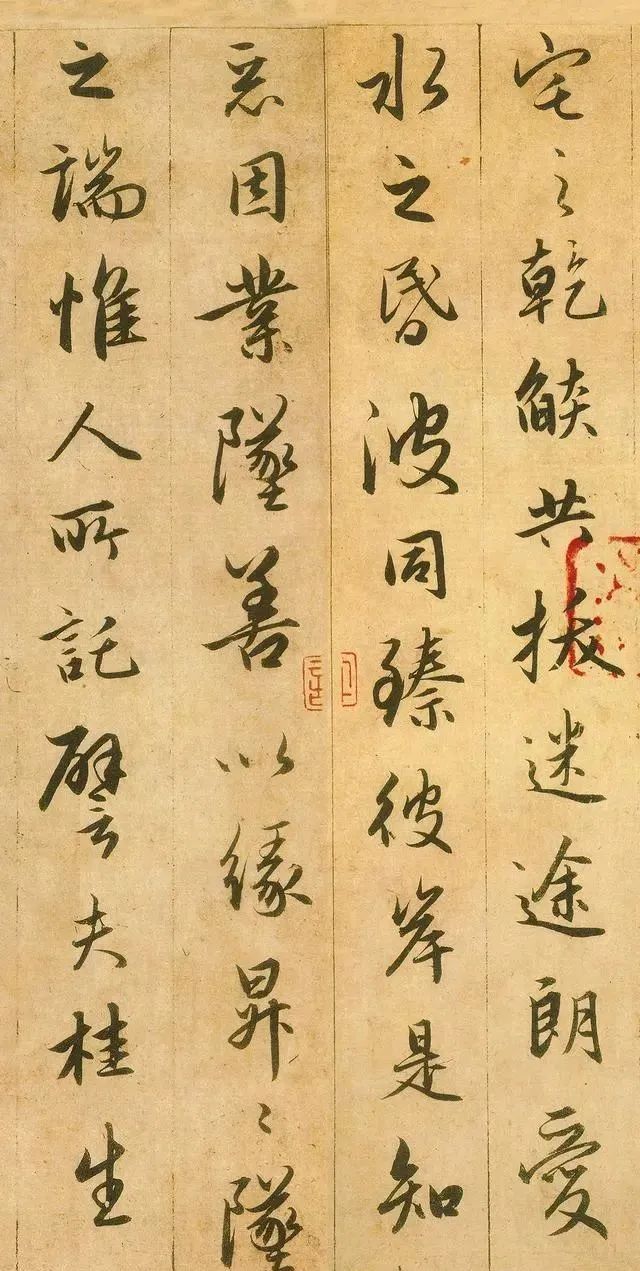 宅之乾燄共拔迷途朗愛
水之昬波同臻彼岸是知
惡因業墜善以緣昇〻墜
之端惟人所託譬夫桂生